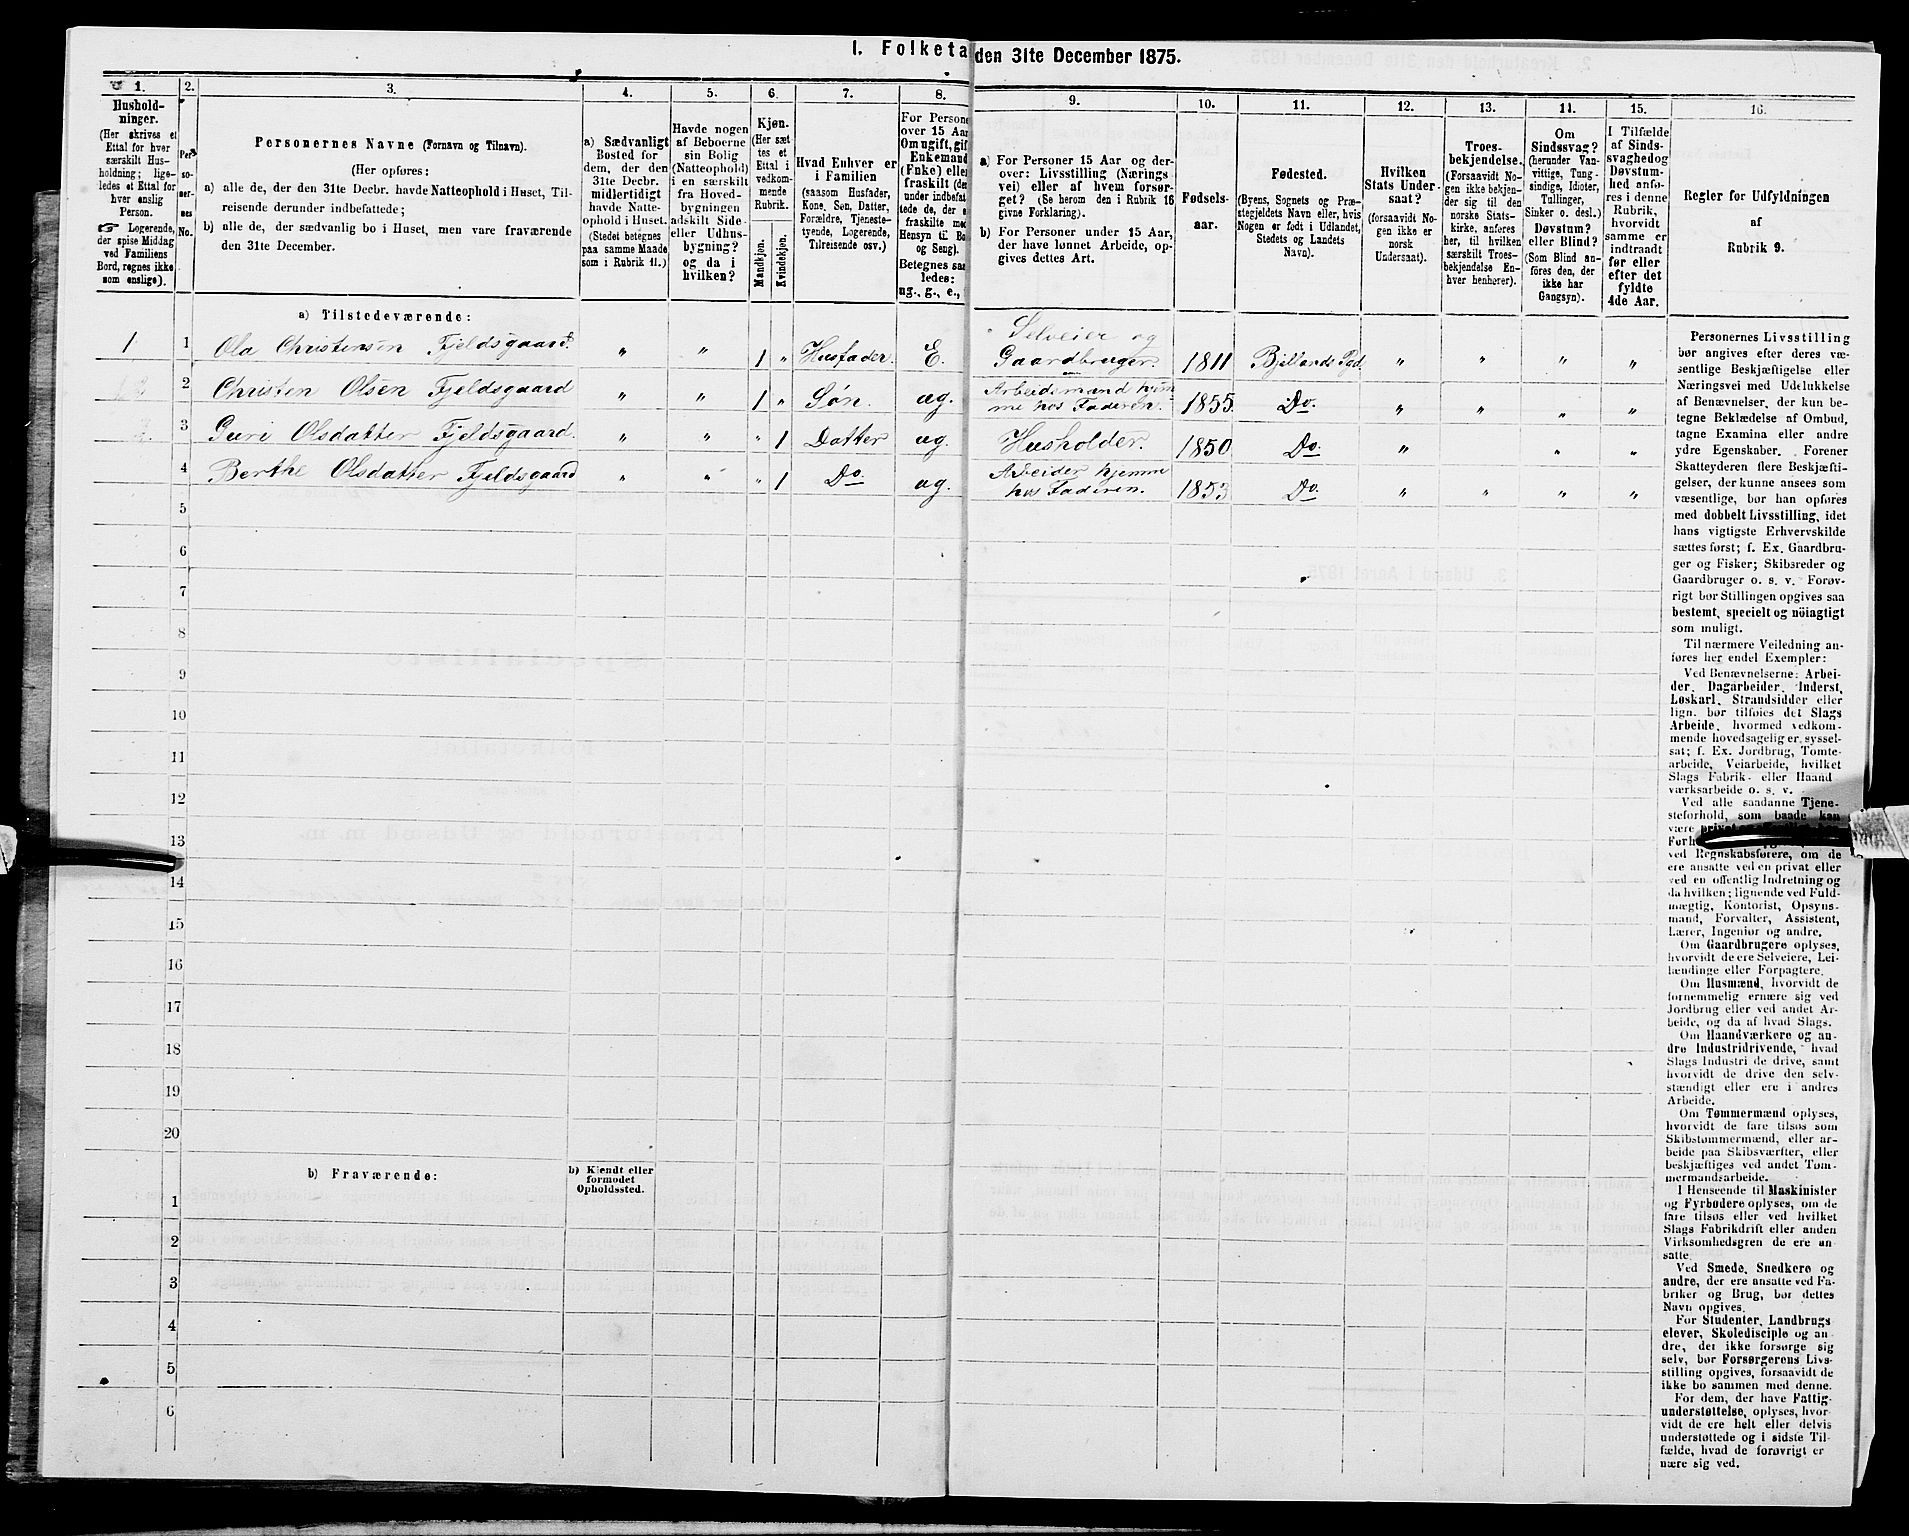 1. Folketa
den 31te December 1875.
1.
Hushold-
ninger.
(Her skrives et
Ettal for hver
særskilt Hus-
holdning; lige-
ledes et Ettal for
hver enslig
Person.
☞ Logerende,
der spise Middag
ved Familiens
Bord, regnes ikke
som enslige).
2.
Per-
so-
ner-
nes
No.
3.
Personernes Navne (Fornavn og Tilnavn).
(Her opføres:
a) alle de, der den 31te Decbr. havde Natteophold i Huset, Til-
reisende derunder indbefattede;
b) alle de, der sædvanlig bo i Huset, men vare fraværende
den 31te December.
4.
a) Sædvanligt
Bosted for
dem, der den
31te Decbr.
midlertidigt
havde Natte-
ophold i Huset.
(Stedet betegnes
paa samme Maade
som i Rubrik 11.)
5.
Havde nogen
af Beboerne
sin Bolig
(Natteophold)
i en særskilt
fra Hoved-
bygningen
adskilt Side-
eller Udhus-
bygning?
og da i
hvilken?
6.
Kjøn.
(Her sæt
tes et
Ettal i
vedkom-
mende
Rubrik.
Mandkjøn.
Kvindekjøn.
7.
Hvad Enhver er
i Familien
(saasom Husfader,
Kone, Søn, Datter,
Forældre, Tjeneste-
tyende, Logerende,
Tilreisende osv.)
8.
For Persone
over 15 Aar
Om ugift, gif
Enkemand
(Enke) elle
fraskilt (der
under indbefat
tede de, der e
fraskilte med
Hensyn til Bo
og Seng).
Betegnes saa
ledes:
ug., g., e.,
9.
a) For Personer 15 Aar og der-
over: Livsstilling (Nærings
vei) eller af hvem forsør-
get? (Se herom den i Rubrik 16
givne Forklaring).
b) For Personer under 15 Aar,
der have lønnet Arbeide, op-
gives dettes Art.
10.
Fødsels-
aar.
11.
Fødested.
(Byens, Sognets og Præ-
stegjeldets Navn eller, hvis
Nogen er født i Udlandet,
Stedets og Landets
Navn).
12.
Hvilken
Stats Under-
saat?
(forsaavidt No-
gen ikke er
norsk
Undersaat).
13.
Troes-
bekjendelse.
(Forsaavidt No-
gen ikke bekjen-
der sig til den
norske Stats-
kirke, anføres
her, til hvilken
særskilt Troes-
bekjendelse En-
hver henhører).
14.
Om
Sindssvag?
(herunder Van-
vittige, Tung-
sindige, Idioter,
Tullinger,
Sinker o. desl.)
Døvstum?
eller Blind?
(Som Blind an-
føres den, der
ikke har
Gangsyn).
15.
I Tilfælde
af Sinds-
svaghed og
Døvstum-
hed anfø-
res i denne
Rubrik,
hvorvidt
samme er
indtraadt
før eller
efter det
fyldte
4de Aar.
16.
Regler for Udfyldningen
af
Rubrik 9.
a) Tilstedeværende:
1 1 Ola Christensen Fjeldsgaard. " " 1 " Husfader. E. Selveier og Gaardbruger. 1811 Bjellands Pgd. " " " "
2 Christen Olsen Fjeldsgaard " " 1 " Søn. ug. Arbeidsmand hjem= me hos Faderen. 1855. Do. " " " "
3 Guri Olsdatter Fjeldsgaard. " " " 1 Datter ug. Husholder. 1850 Do. " " "
4 Berthe Olsdatter Fjeldsgaard " " " 1 Do. ug. Arbeider hjemme hos Faderen. 1853 Do. " " " "
5
6
7
8
9
10
11
12
13
14
15
16
17
18
19
20
b) Fraværende:
b) Kjendt eller
formodet
Opholdssted.
1
2
3
4
5
6
Personernes Livsstilling
bør angives efter deres væ-
sentlige Beskjæftigelse eller
Næringsvei med Udelukkelse
af Benævnelser, der kun be-
tegne Beklædelse af Ombud,
tagne Examina eller andre
ydre Egenskaber. Forener
Skatteyderen flere Beskjæfti-
gelser, der kunne ansees som
væsentlige, bør han opføres
med dobbelt Livsstilling, idet
hans vigtigste Erhvervskilde
sættes først; f. Ex. Gaardbru-
ger og Fisker; Skibsreder og
Gaardbruger o. s. v. Forøv-
rigt bør Stillingen opgives saa
bestemt, specielt og nöiagtigt
som muligt.
Til nærmere Veiledning an-
føres her endel Exempler:
Ved Benævnelserne: Arbei-
der, Dagarbeider, Inderst,
Løskarl, Strandsidder eller
lign. bør tilføies det Slags
Arbeide, hvormed vedkom-
mende hovedsagelig er syssel-
sat; f. Ex. Jordbrug, Tomte-
arbeide, Veiarbeide, hvilket
Slags Fabrik- eller Haand
værksarbeide o. s. v.
Ved alle saadanne Tjene-
steforhold, som baade kan
være
Forh
ved Regnskabsførere, om de
ere ansatte ved en privat eller
ved en offentlig Indretning og
da hvilken; lignende ved Fuld-
mægtig, Kontorist, Opsyns-
mand, Forvalter, Assistent,
Lærer, Ingeniør og andre.
Om Gaardbrugere oplyses,
hvorvidt de ere Selveiere, Lei-
lændinge eller Forpagtere.
Om Husmænd, hvorvidt de
fornemmelig ernære sig ved
Jordbrug eller ved andet Ar-
beide, og da af hvad Slags.
Om Haandværkere og an-
dre Industridrivende, hvad
Slags Industri de drive, samt
hvorvidt de drive den selv-
stændigt eller ere i andres
Arbeide.
Om Tømmermænd oplyses,
hvorvidt de fare tilsøs som
Skibstømmermænd, eller ar-
beide paa Skibsværfter, eller
beskjæftiges ved andet Tøm-
mermandsarbeide.
I Henseende til Maskinister
og Fyrbødere oplyses, om de
fare tilsøs eller ved hvilket
Slags Fabrikdrift eller anden
Virksomhedsgren de ere an-
satte.
Ved Smede, Snedkere og
andre, der ere ansatte ved Fa-
briker og Brug, bør dettes
Navn opgives.
For Studenter, Landbrugs
elever, Skoledisciple og an
dre, der ikke forsørge sig
selv, bør Forsørgerens Livs-
stilling opgives, forsaavidt de
ikke bo sammen med denne.
For dem, der have Fattig-
understøttelse, oplyses, hvor-
vidt de ere helt eller delvis
understøttede og i sidste Til-
fælde, hvad de forøvrigt er
nære sig ved.